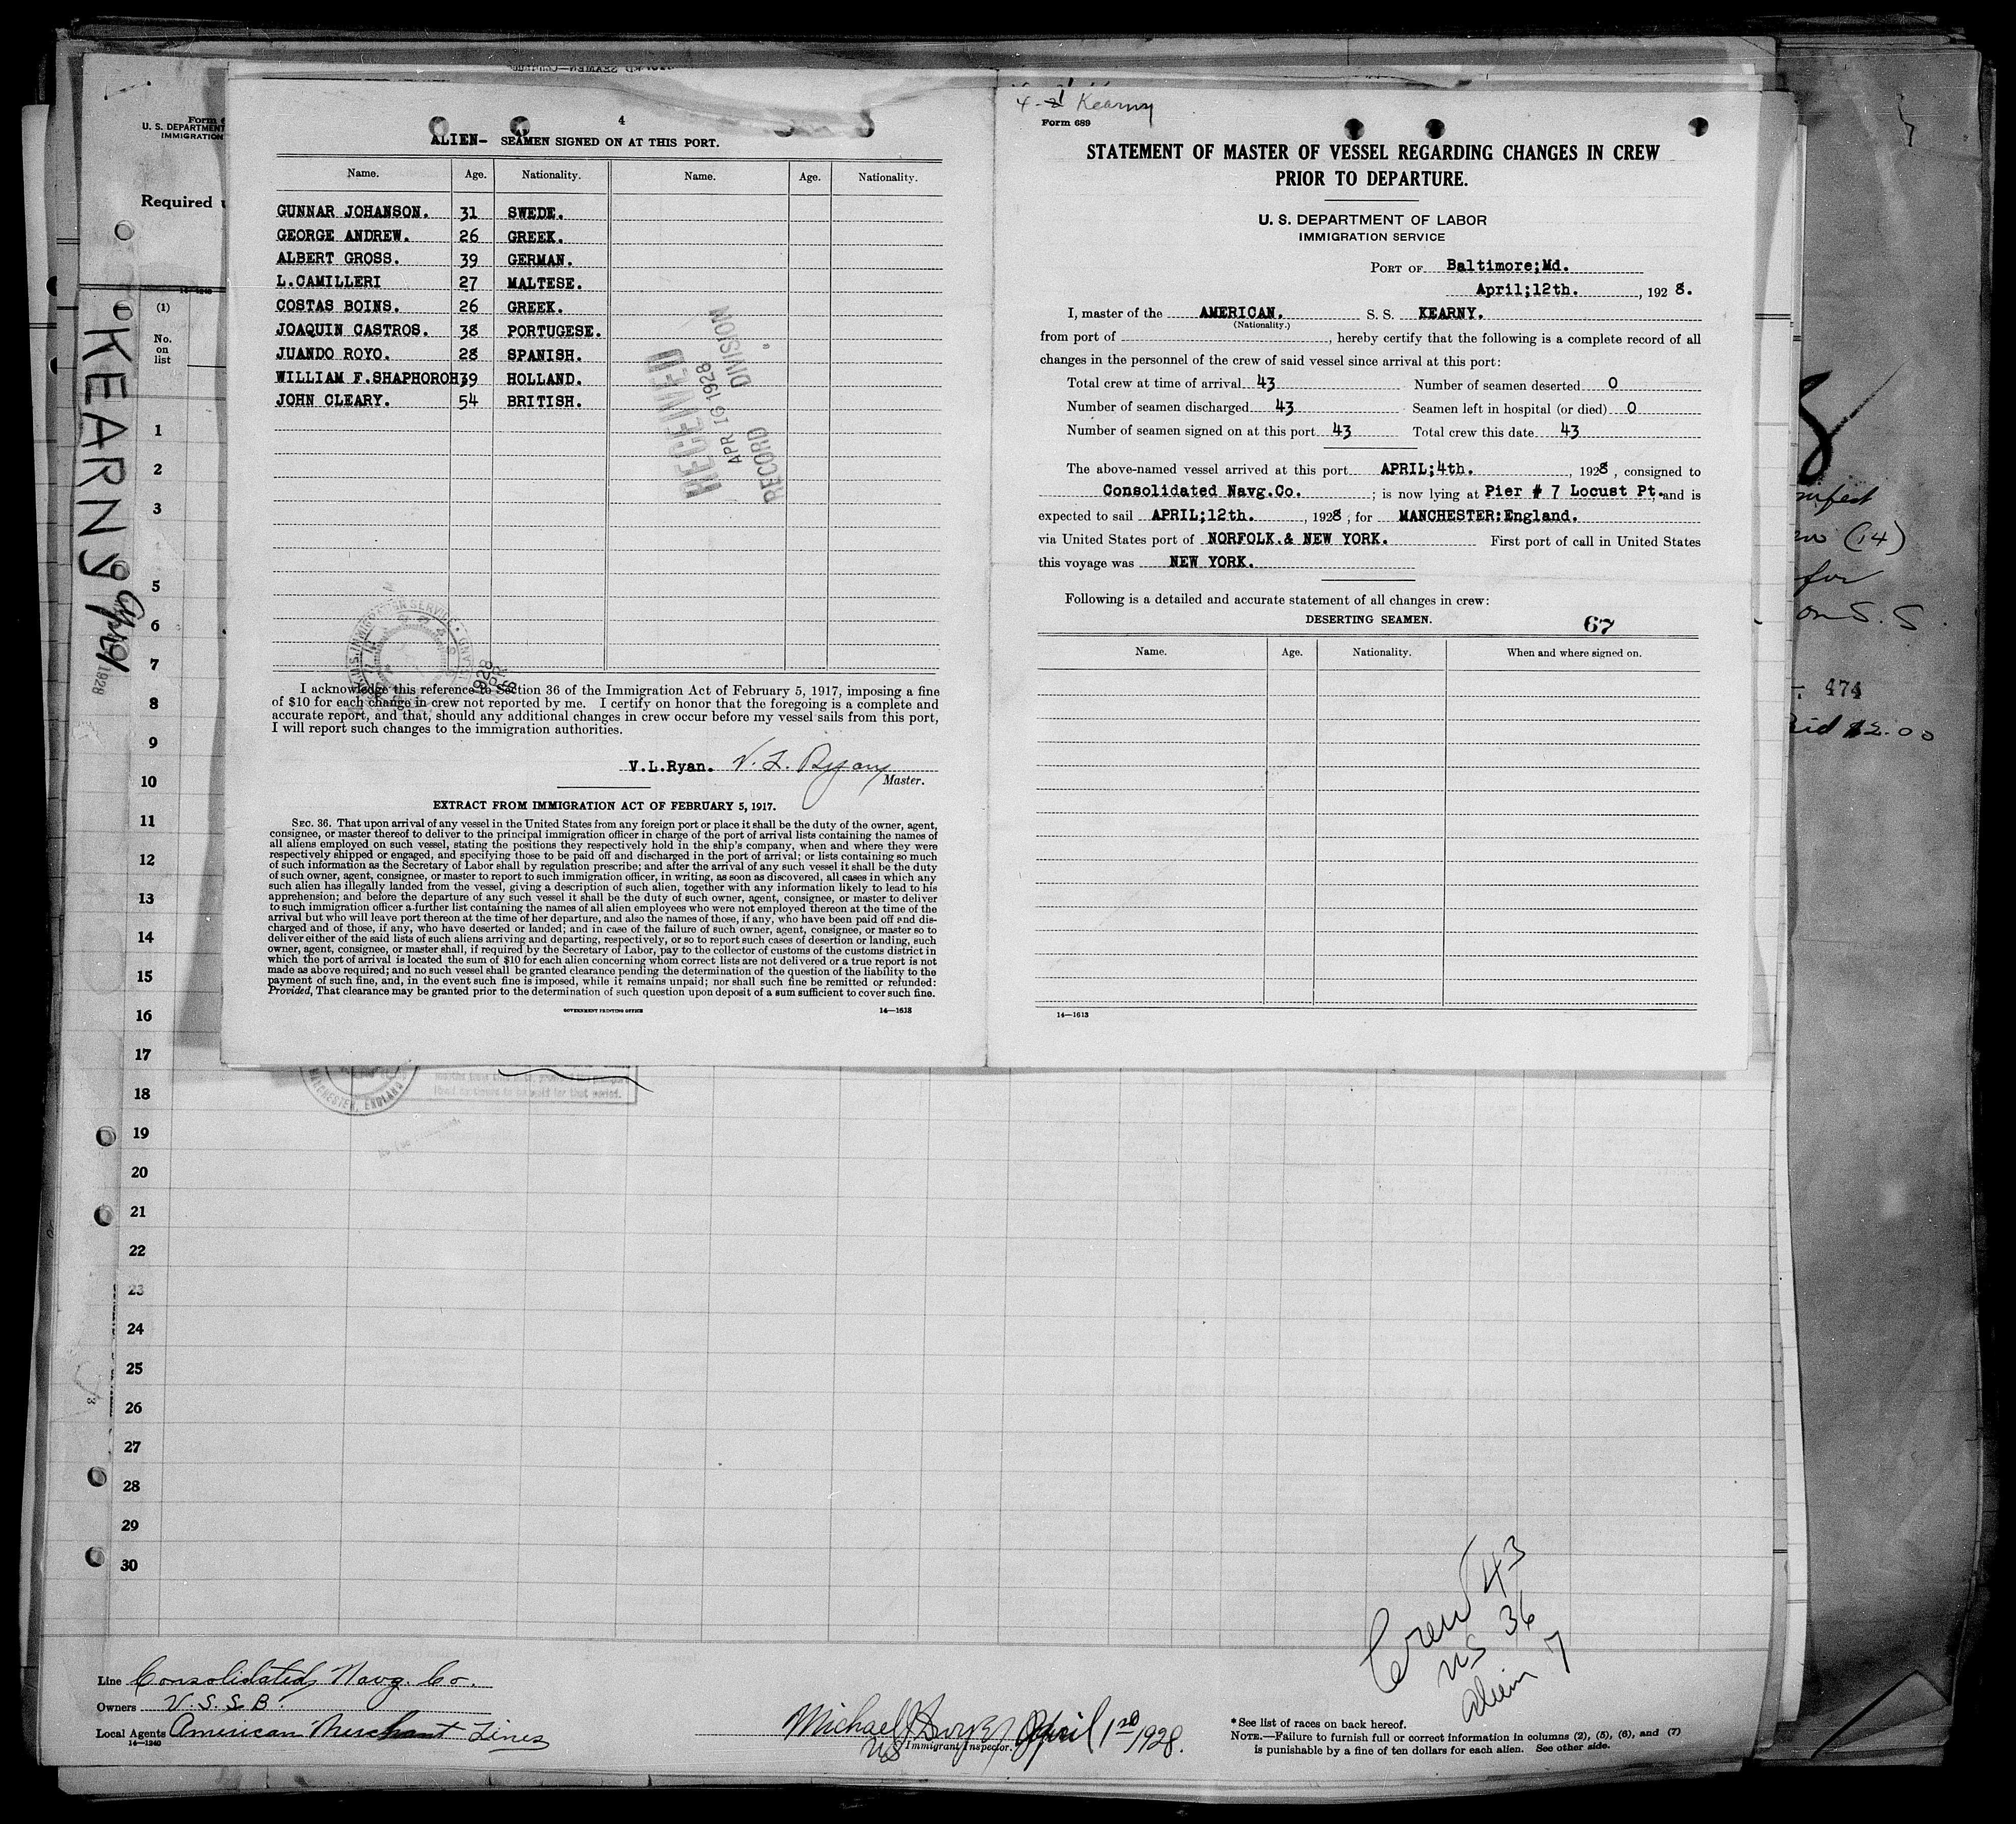 Form
U. S. DEPARTMENT
IMMIGRATION
Required
14—1240
(1)
No.
on
list
KEARNY
1928
1
2
3
5
6
7
8
9
10
11
12
13
14
15
16
17
18
19
20
21
22
23
24
25
26
27
28
29
30
4
ALIEN- SEAMEN SIGNED ON AT THIS PORT.
Name. Age. Nationality. Name. Age. Nationality.
GUNNAR JOHANSON. 31 SWEDE.
GEORGE ANDREW. 26 GREEK.
ALBERT GROSS. 39 GERMAN.
L.CAMILLERI 27 MALTESE.
COSTAS BOINS. 26 GREEK.
JOAQUIN CASTROS. 38 PORTUGESE.
JUANDO ROYO. 28 SPANISH.
WILLIAM F.SHAPHOROH, 39 HOLLAND.
JOHN CLEARY. 54 BRITISH.
RECEIVED
APR 16 1928
RECORD DIVISION
I acknowledge this reference to Section 36 of the Immigration Act of February 5, 1917, imposing a fine
of $10 for each change in crew not reported by me. I certify on honor that the foregoing is a complete and
accurate report, and that, should any additional changes in crew occur before my vessel sails from this port,
I will report such changes to the immigration authorities.
V.L.Ryan. V. L. Ryan
Master.
EXTRACT FROM IMMIGRATION ACT OF FEBRUARY 5, 1917.
SEC. 36. That upon arrival of any vessel in the United States from any foreign port or place it shall be the duty of the owner, agent,
consignee, or master thereof to deliver to the principal immigration officer in charge of the port of arrival lists containing the names of
all aliens employed on such vessel, stating the positions they respectively hold in the ship's company, when and where they were
respectively shipped or engaged, and specifying those to be paid off and discharged in the port of arrival; or lists containing so much
of such information as the Secretary of Labor shall by regulation prescribe; and after the arrival of any such vessel it shall be the duty
of such owner, agent, consignee, or master to report to such immigration officer, in writing, as soon as discovered, all cases in which any
such alien has illegally landed from the vessel, giving a description of such alien, together with any information likely to lead to his
apprehension; and before the departure of any such vessel it shall be the duty of such owner, agent, consignee, or master to deliver
to such immigration officer a further list containing the names of all alien employees who were not employed thereon at the time of the
arrival but who will leave port thereon at the time of her departure, and also the names of those, if any, who have been paid off and dis-
charged and of those, if any, who have deserted or landed; and in case of the failure of such owner, agent, consignee, or master so to
deliver either of the said lists of such aliens arriving and departing, respectively, or so to report such cases of desertion or landing, such
owner, agent, consignee, or master shall, if required by the Secretary of Labor, pay to the collector of customs of the customs district in
which the port of arrival is located the sum of $10 for each alien concerning whom correct lists are not delivered or a true report is not
made as above required; and no such vessel shall be granted clearance pending the determination of the question of the liability to the
payment of such fine, and, in the event such fine is imposed, while it remains unpaid; nor shall such fine be remitted or refunded:
Provided, That clearance may be granted prior to the determination of such question upon deposit of a sum sufficient to cover such fine.
GOVERNMENT PRINTING OFFICE 14—1613
Kearny
Form 689
STATEMENT OF MASTER OF VESSEL REGARDING CHANGES IN CREW
PRIOR TO DEPARTURE.
U. S. DEPARTMENT OF LABOR
IMMIGRATION SERVICE
PORT OF Baltimore;Md.
April;12th. , 192 8.
I, master of the AMERICAN. S. S. KEARNY.
(Nationality.)
from port of , hereby certify that the following is a complete record of all
changes in the personnel of the crew of said vessel since arrival at this port:
Total crew at time of arrival 43 Number of seamen deserted 0
Number of seamen discharged 43 Seamen left in hospital (or died) 0
Number of seamen signed on at this port 43 Total crew this date 43
The above-named vessel arrived at this port APRIL;4th. , 1928 , consigned to
Consolidated Navg.Co. ; is now lying at Pier # 7 Locust Pt. and is
expected to sail APRIL;12th. , 1928 , for MANCHESTER:England.
via United States port of NORFOLK.& NEW YORK. First port of call in United States
this voyage was NEW YORK.
Following is a detailed and accurate statement of all changes in crew:
DESERTING SEAMEN. 67
Name. Age. Nationality. When and where signed on.
14—1613
(14)
for
on S. S.
474
$2.00
MANCHESTER, ENGLAND
Crew 43
US 36
Alien 7
Line Consolidated Navg. Co.
Owners U. S. S. B.
Local Agents American Merchant Lines
14—1240
Michael
Immigrant Inspector.
April 1928.
* See list of races on back hereof.
NOTE.—Failure to furnish full or correct information in columns (2), (5), (6), and (7)
is punishable by a fine of ten dollars for each alien. See other side.